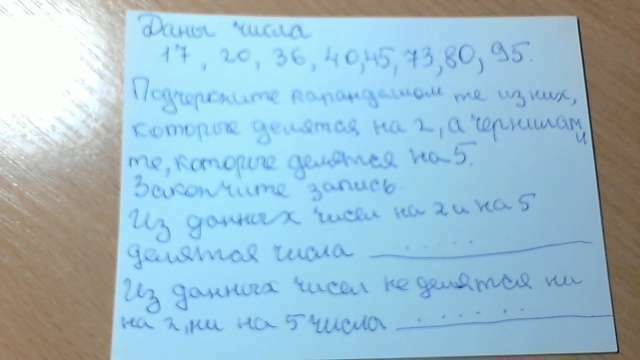 Даны числа
17, 20, 36, 40, 45, 73, 80, 95.
Подчеркните карандашом те из них,
которые делятся на 2, а чернилами
те, которые делятся на 5.
Закончите запись.
Из данных чисел на 2 и на 5
делятся числа .....
Из данных чисел не делятся ни
на 2, ни на 5 числа ......